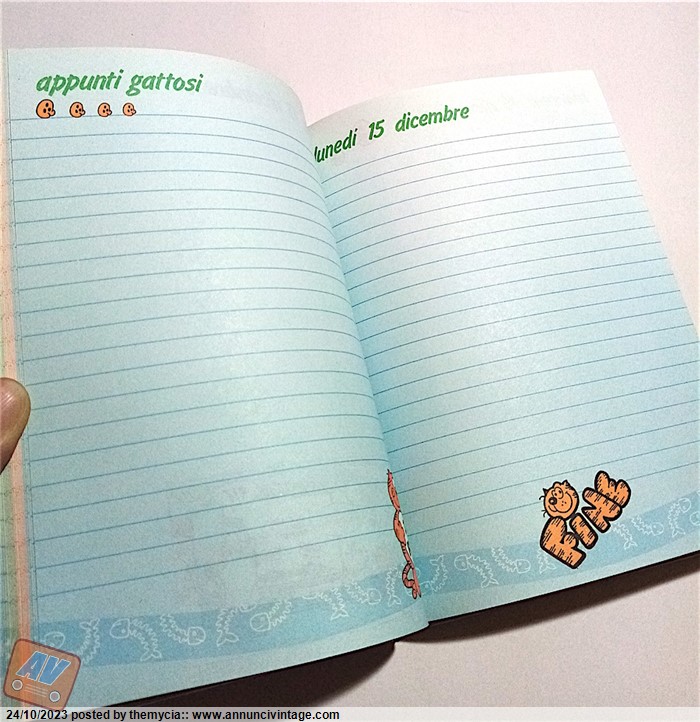 appunti gattosi
lunedì 15 dicembre
PINK
AV
24/10/2023 posted by themycia:: www.annuncivintage.com